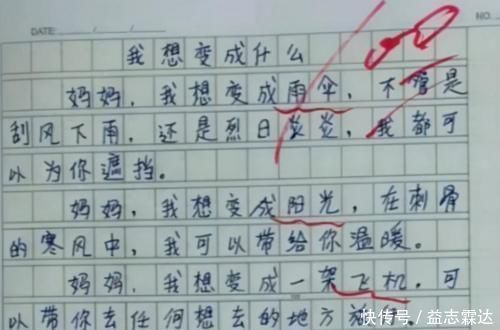 DATE: NO.
我想变成什么
妈妈,我想变成雨伞,不管是
刮风下雨,还是烈日炎炎,我都可
以为你遮挡。
妈妈,我想变成阳光,在刺骨
的寒风中,我可以带给你温暖。
妈妈,我想变成一架飞机,可
以带你去任何想去的地方
快传号/益志霖达